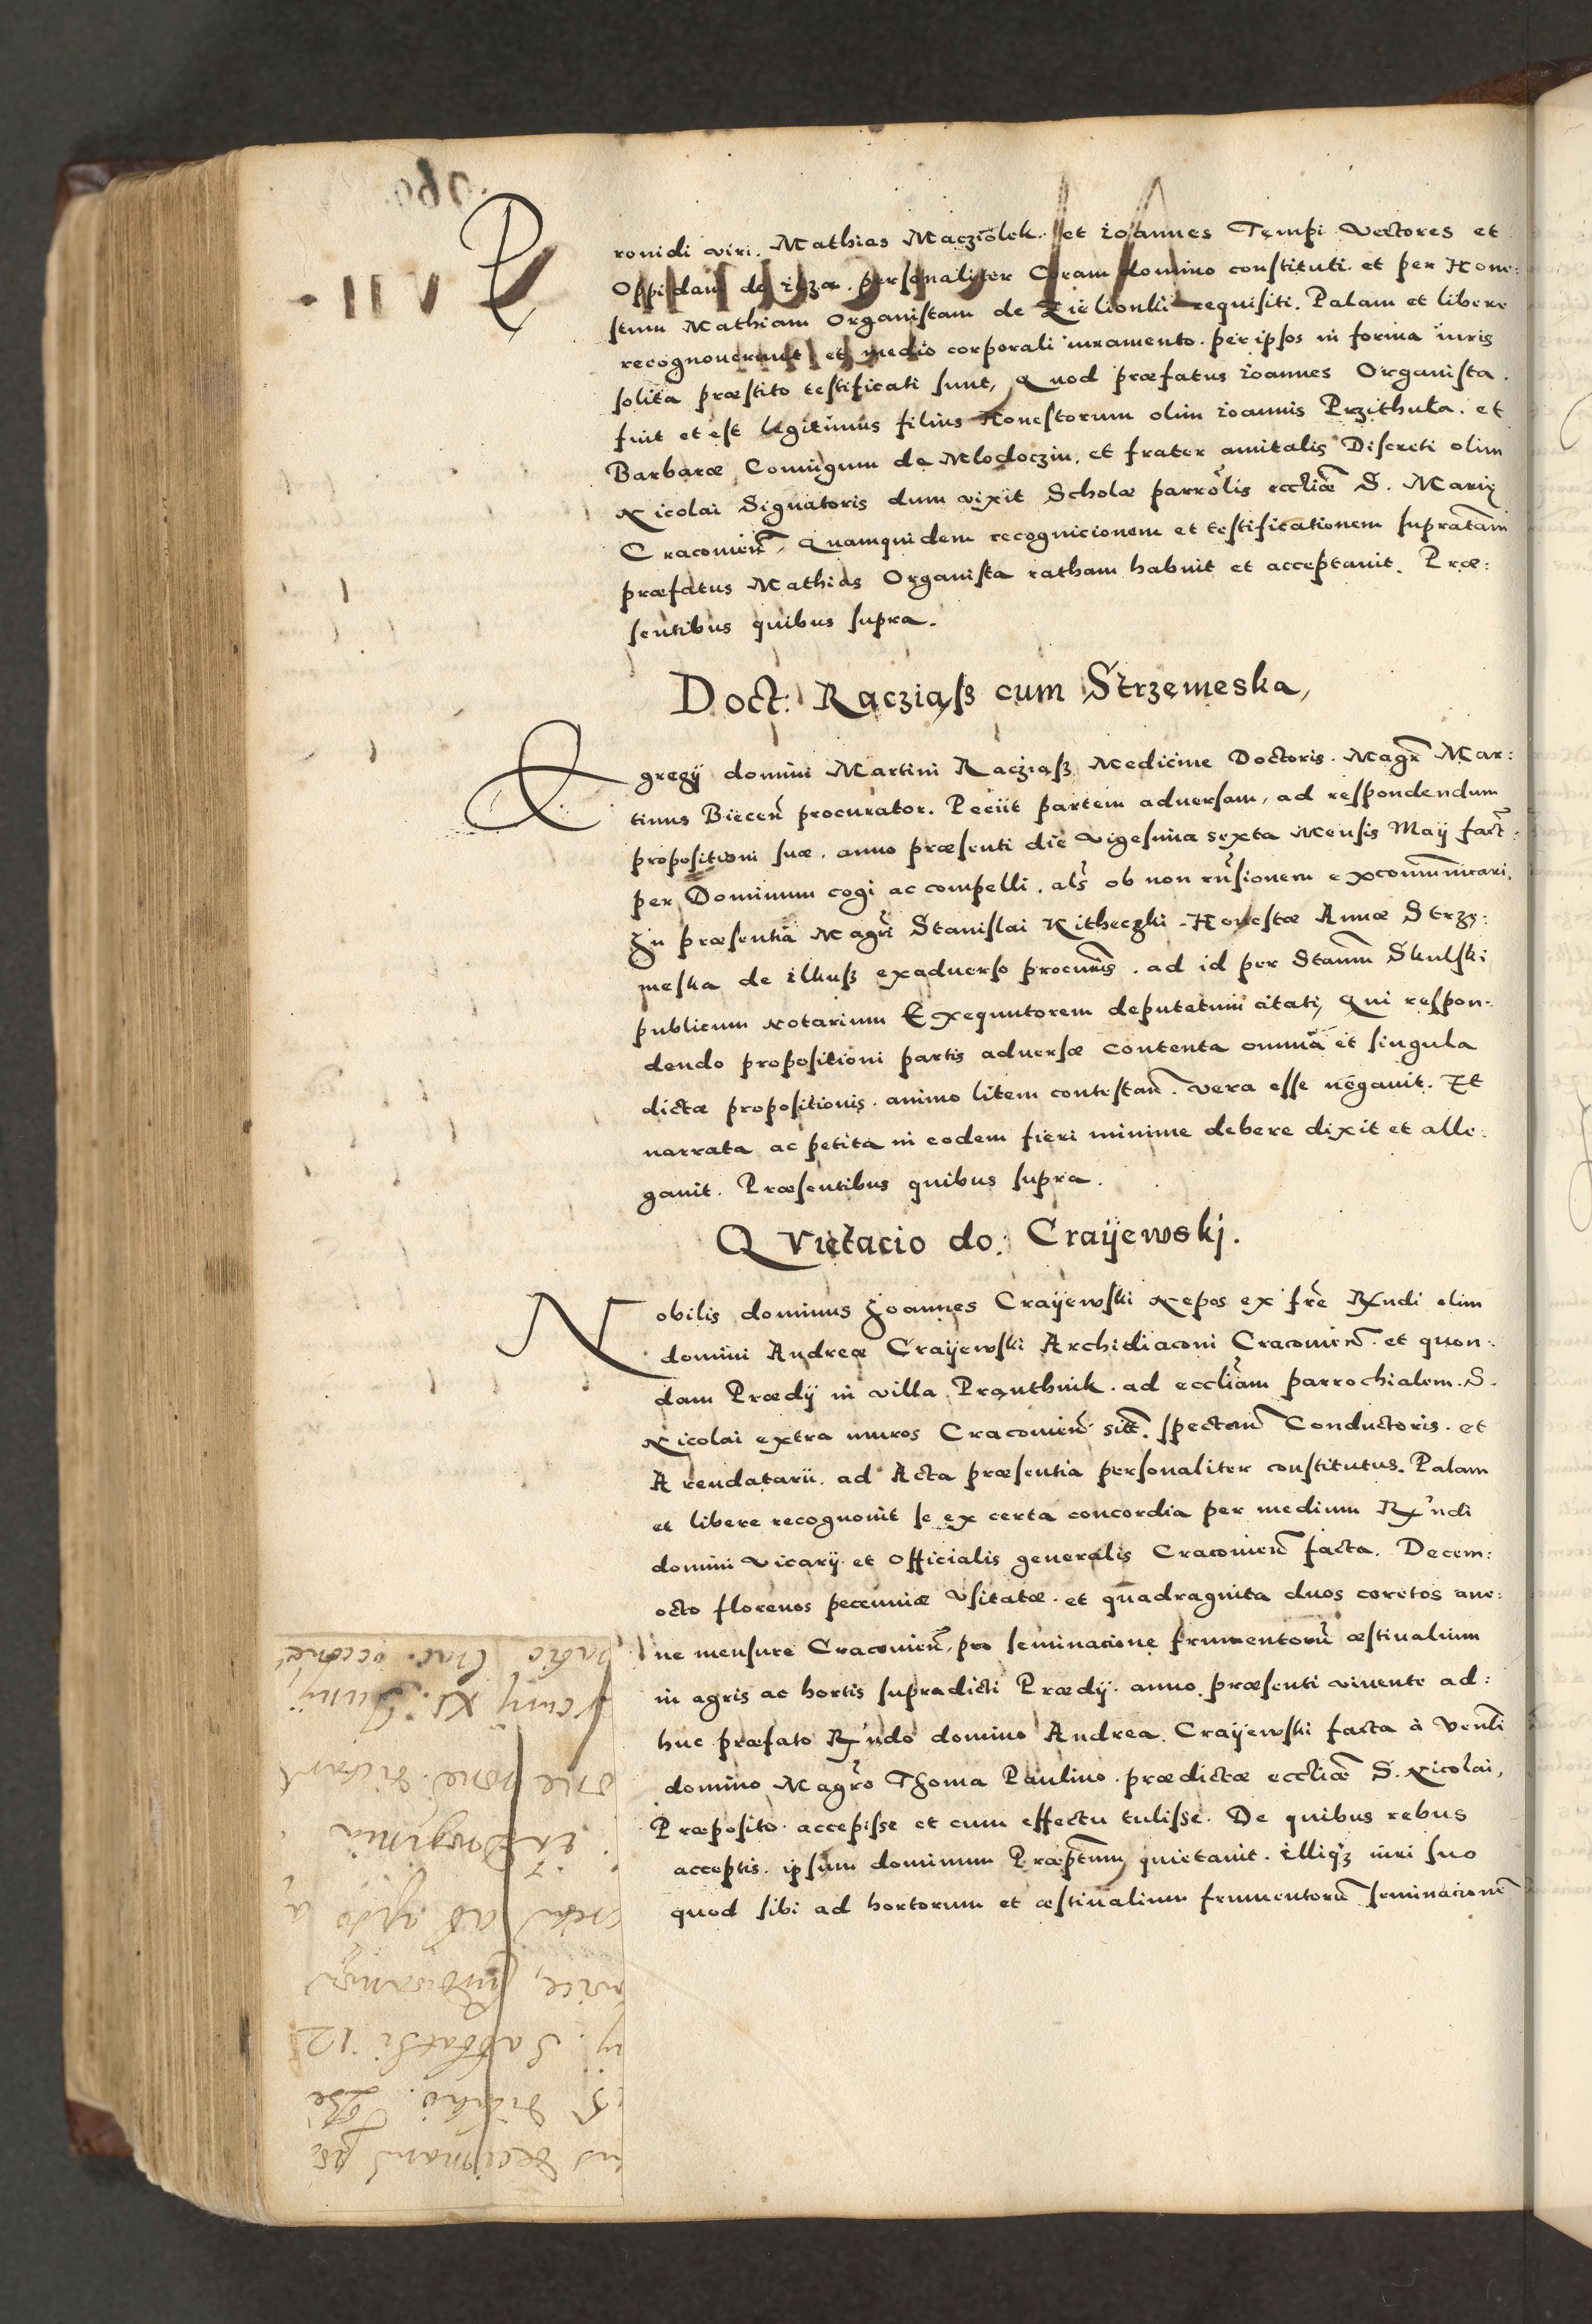 Providi viri. Mathias Macziolek. et ioannes Tempi Vectores et
Oppidani de ilza. personaliter Coram domino constituti. et per Hone:
stum Mathiam Organistam de Zielionki requisiti. Palam et libere
recognoverunt et medio corporali iuramento. per ipsos in forma iuris
solita præstito testificati sunt, Quod præfatus ioannes Organista.
fuit et est legitimus filius Honestorum olim ioannis Przithula. et
Barbaræ Coniugum de Mlodoczin. et frater amitalis Discreti olim
Nicolai Signatoris dum vixit Scholæ parrolis eccliæ S. Mariæ
Cracovien, Quamquidem recognicionem et testificationem supratam
præfatus Mathias Organista ratham habuit et acceptavit. Præ:
sentibus quibus supra.
Doct: Rącziąsz cum Strzemeska,
Egregÿ domini Martini Rącziąsz Medicine Doctoris. Magr Mar:
tinus Biecen procurator. Peciit partem adversam, ad respondendum
propositioni suæ. anno præsenti die Vigesima sexta Mensis Maÿ fact:
per Dominum cogi ac compelli. als ob non rnsionem excommunicari.
In præsentia Magri Stanislai Kitheczki Honestæ Annæ Strze:
meska de ilkusz exadverso procuris. ad id per Stanm Skulski
publicum Notarium Exequutorem deputatum citati, Qui respon:
dendo propositioni partis adversæ contenta omnia et singula
dictæ propositionis. animo litem contestan. vera esse negavit. Et
narrata ac petita in eodem fieri minime debere dixit et alle:
gavit. Præsentibus quibus supra.
QVietacio do: Craÿewskj.
Nobilis dominus Joannes Craÿewski Nepos ex fre Rndi olim
domini Andreæ Craÿewski Archidiaconi Cracovien. et quon:
dam Prædÿ in villa Prąnthnik. ad eccliam parrochialem. S.
Nicolai extra muros Cracovien sit. spectan Conductoris. et
Arendatarii. ad Acta præsentia personaliter constitutus. Palam
et libere recognovit se ex certa concordia per medium Rndi
domini Vicarÿ et Officialis generalis Cracovien facta. Decem:
octo florenos pecuniæ Vsitatæ. et quadraginta duos coretos ave:
ne mensure Cracovien, pro seminacione frumentoru æstivalium
in agris ac hortis supradicti Prædÿ. anno præsenti vivente ad:
huc præfato Rndo domino Andrea Craÿewski facta à Venli
domino Magro Thoma Paulino. prædictæ eccliæ S. Nicolai,
Præposito. accepisse et cum effectu tulisse. De quibus rebus
acceptis. ipsum dominum Præptum quietavit. illiqz iuri suo
quod sibi ad hortorum et æstivalium frumentoru seminacione